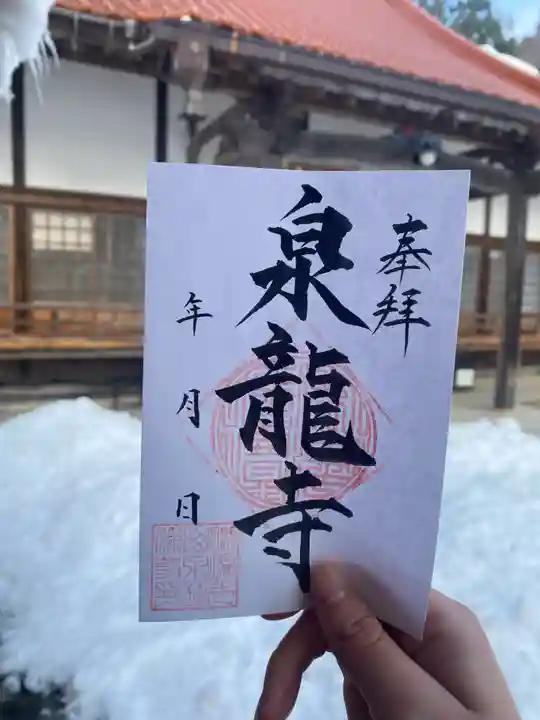 奉拝
泉龍寺
年月日